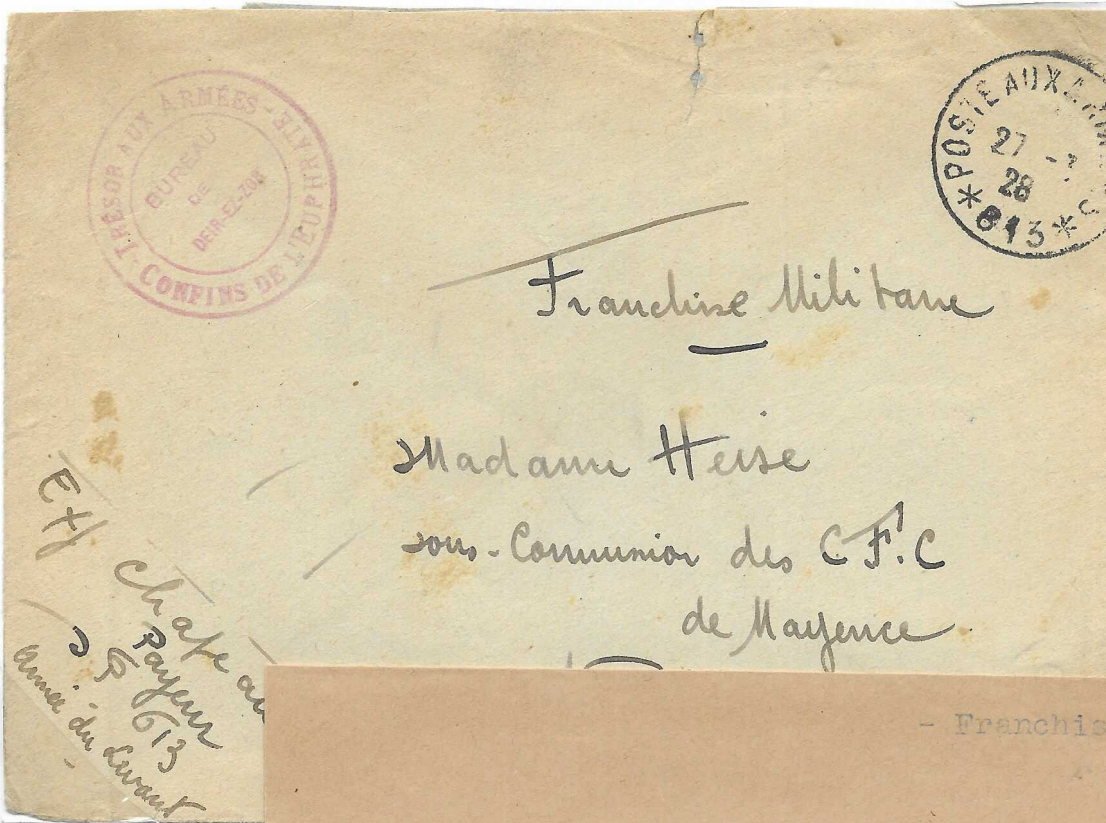 TRÉSOR AUX ARMÉES - CONFINS DE L'EUPHRATE
BUREAU
DE
DEIR-EZ-ZOR
*POSTE AUX ARM
27 -
28
*613*
Franchise Militaire
Madame Heise
sous-Commission des C.F.C
de Mayence
Chapeau
Payeur
SP 613
Armée du Levant
- Franchis